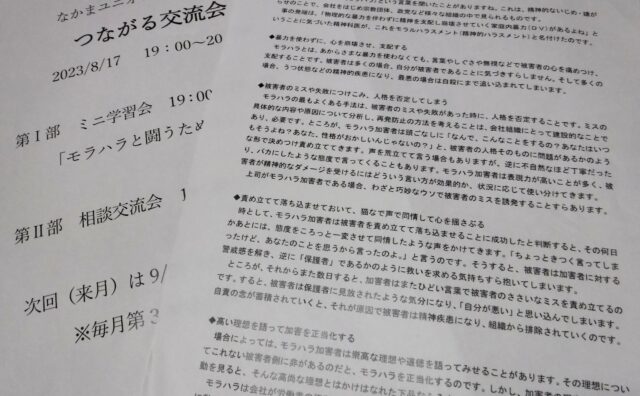 なかまユニオ
つながる交流会
2023/8/17 19:00~20
第Ⅰ部 ミニ学習会 19:00
「モラハラと闘うため
第Ⅱ部 相談交流会 1
次回(来月)は 9/
※毎月第3
という言葉を聞いたことがありますね。これは、精神的ないじめ・嫌が
らせのことで、会社をはじめ宗教団体、自党など様々な組織の中で見られるものです。
事の発端は、「物理的な暴力を使わずに精神を支配し崩壊させていく家庭内暴力(DV)があるよね」と
いうことに気づいた精神科医が、これをモラルハラスメント(精神的ハラスメント)と名付けたのです。
◆暴力を使わずに、心を崩壊させ、支配する
モラハラとは、あからさまな暴力を使わなくても、言葉やしぐさや無視などで被害者の心を痛めつけ、
支配することです。被害者は多くの場合、自分が被害者であることに気づきすらしません。そして多くの
場合、うつ状態などの精神的疾患になり、最悪の場合は自殺にまで追い込まれてしまいます。
◆被害者のミスや失敗につけこみ、人格を否定してしまう
モラハラの最もよくある手法は、被害者のミスや失敗があった時に、人格を否定することです。ミスの
具体的な内容や原因について分析し、再発防止の方法を考えることは、会社組織にとって建設的なことで
あり、必要です。ところが、モラハラ加害者は頭ごなしに「なんで、こんなことをするの?あなたはいつ
もそうよね?あなた、性格がおかしいんじゃないの?」と、被害者の人格そのものに問題があるかのよう
な形で決めつけ責め立ててきます。声を荒立てて言う場合もありますが、逆に不自然なほど丁寧だった
り、バカにしたような態度で言ってくることもあります。モラハラ加害者は表現力が高いことが多く、被
害者が精神的なダメージを受けるにはどういう言い方が効果的か、状況に応じて使い分けてきます。
上司がモラハラ加害者である場合、わざと巧妙なウソで被害者のミスを誘発することすらあります。
◆責め立てて落ち込ませておいて、猫なで声で同情して心を揺さぶる
時として、モラハラ加害者は被害者を責め立てて落ち込ませることに成功したと判断すると、その何日
かあとには、態度をころっと一変させて同情したような声をかけてきます。「ちょっときつく言ってしま
ったけど、あなたのことを思うから言ったのよ。」と言うのです。そうすると、被害者は加害者に対する
警戒感を解き、逆に「保護者」であるかのように救いを求める気持ちすら抱いてしまいます。
ところが、それからまた数日すると、加害者はまたひどい言葉で被害者のささいなミスを責め立てるの
です。すると、被害者は保護者に見放されたような気分になり、「自分が悪い」と思い込んでしまいます。
自責の念が蓄積されていくと、それが原因で被害者は精神疾患になり、組織から排除されていくのです。
◆高い理想を語って加害を正当化する
場合によっては、モラハラ加害者は崇高な理想や道徳を語ってみせることがあります。その理想につい
てこれない被害者側に非があるのだと、モラハラを正当化するのです。しかし、加害者の
動を見ると、そんな高尚な理想とはかけはなれた
モラハラは会社が